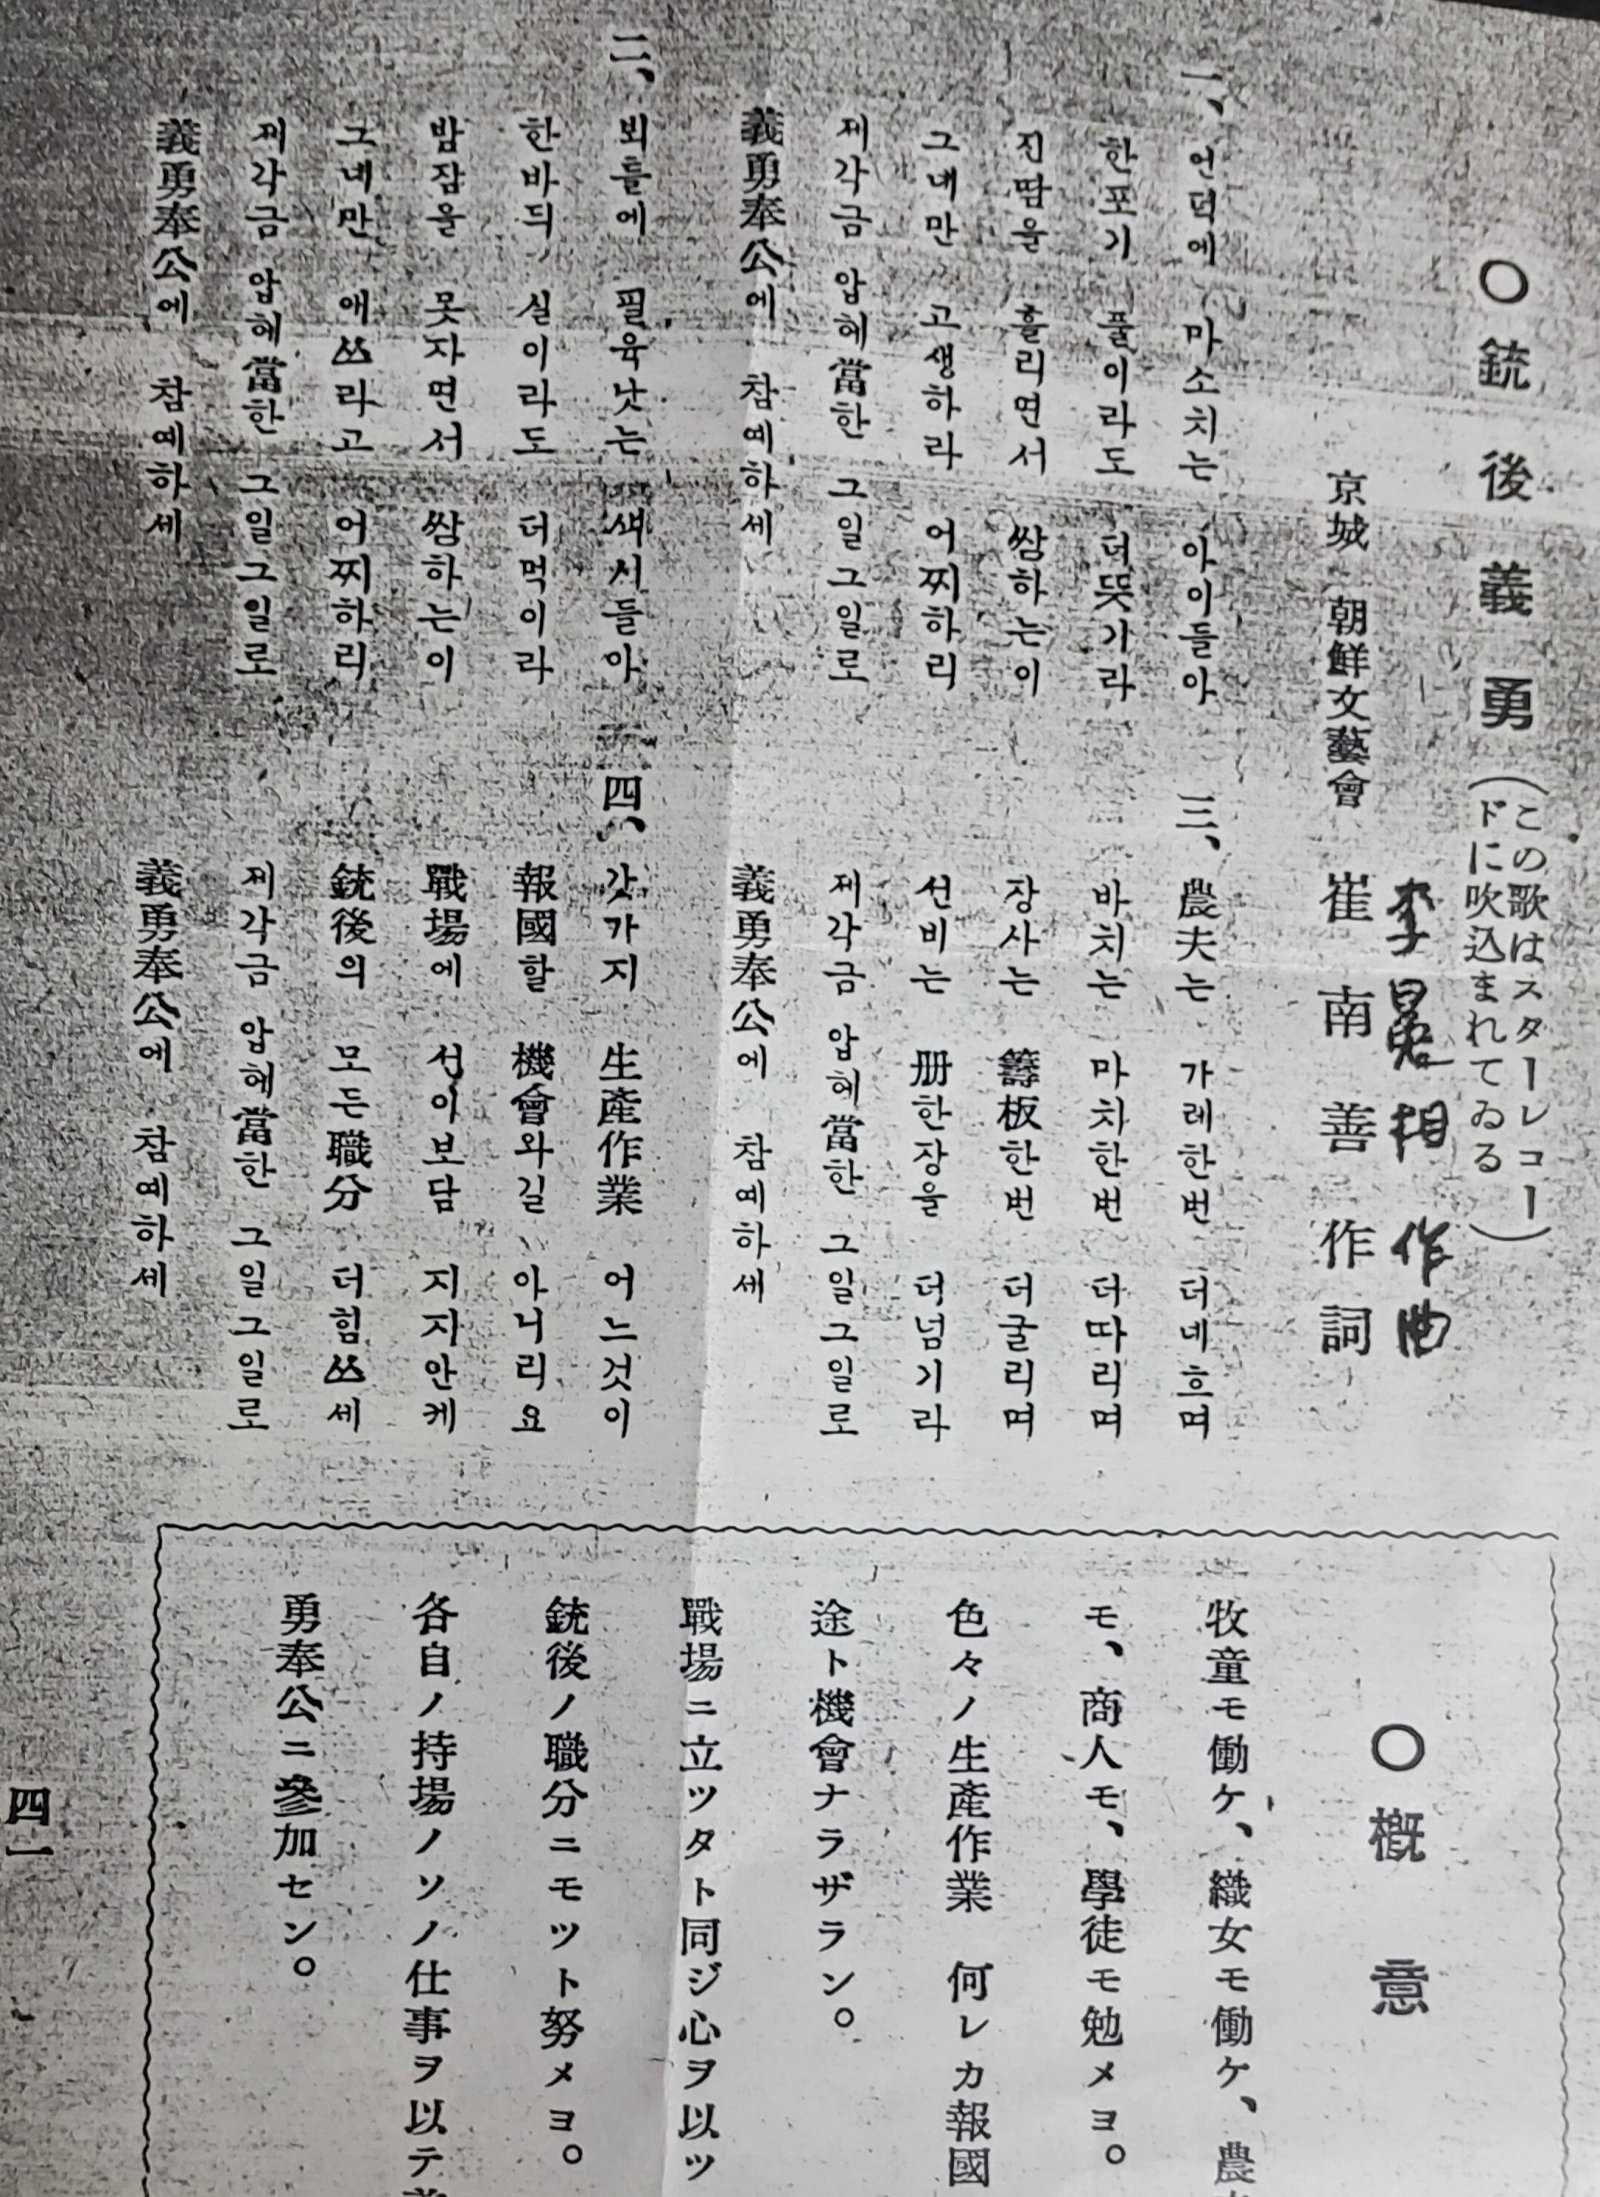 〇銃後義勇
(この歌はスターレコー
ドに吹込まれてゐる)
李冕相 作曲
京城 朝鮮文藝會 崔南善作詞
一、언덕에 마소치는 아이들아
한포기 풀이라도 더뜻가라
진땀을 흘리면서 쌈하는이
그네만 고생하라 어찌하리
제각금 압헤當한 그일그일로
義勇奉公에 참예하세
二、뵈틀에 필육낫는 색시들아
한바듸 실이라도 더먹이라
밤잠을 못자면서 쌈하는이
그네만 애쓰라고 어찌하리
제각금 압헤當한 그일그일로
義勇奉公에 참예하세
三、農夫는 가레한번 더네흐며
바치는 마치한번 더따리며
장사는 籌板한번 더굴리며
선비는 册한장을 더넘기라
제각금 압헤當한 그일그일로
義勇奉公에 참예하세
四、갓가지 生產作業 어느것이
報國할 機會와길 아니리요
戰場에 선이보담 지지안케
銃後의 모든職分 더힘쓰세
제각금 압헤當한 그일그일로
義勇奉公에 참예하세
〇概意
牧童モ働ケ、織女モ働ケ、農
モ、商人モ、學徒モ勉メヨ。
色々ノ生產作業 何レカ報國
途ト機會ナラザラン。
戰場ニ立ツタト同ジ心ヲ以ツ
銃後ノ職分ニモツト努メヨ。
各自ノ持場ノソノ仕事ヲ以テ
勇奉公ニ參加セン。
四一